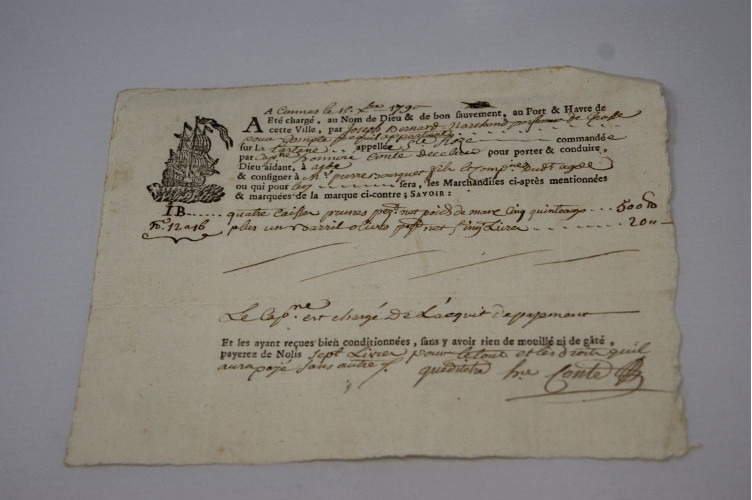 A Cannes le 15 Xbre 179
A Eté chargé, au Nom de Dieu & de bon sauvement, au Port & Havre de
cette Ville, par Joseph Bernard Marchand
pour compte
sur La Tartane appellée Ste Rose commandée
par Capne honnoré Conte pour porter & conduire,
Dieu aidant, à agde
& consigner à Mr. pierre fils Compne Dudt agde
ou qui pour sera, les Marchandises ci-après mentionnées
& marquées de la marque ci-contre; SAVOIR:
IB quatre Caisses prunes pest. net poids de marc Cinq quinteaux 500 lb
No. 12 a 16 plus un Barril olives pest net Livres 20
Le Capne est chargé De L'acquit de payement
Et les ayant reçues bien conditionnées, sans y avoir rien de mouillé ni de gâté,
payerez de Nolis sept Livres pour le tout et les droits quil
aura payé sans autre hre Conte